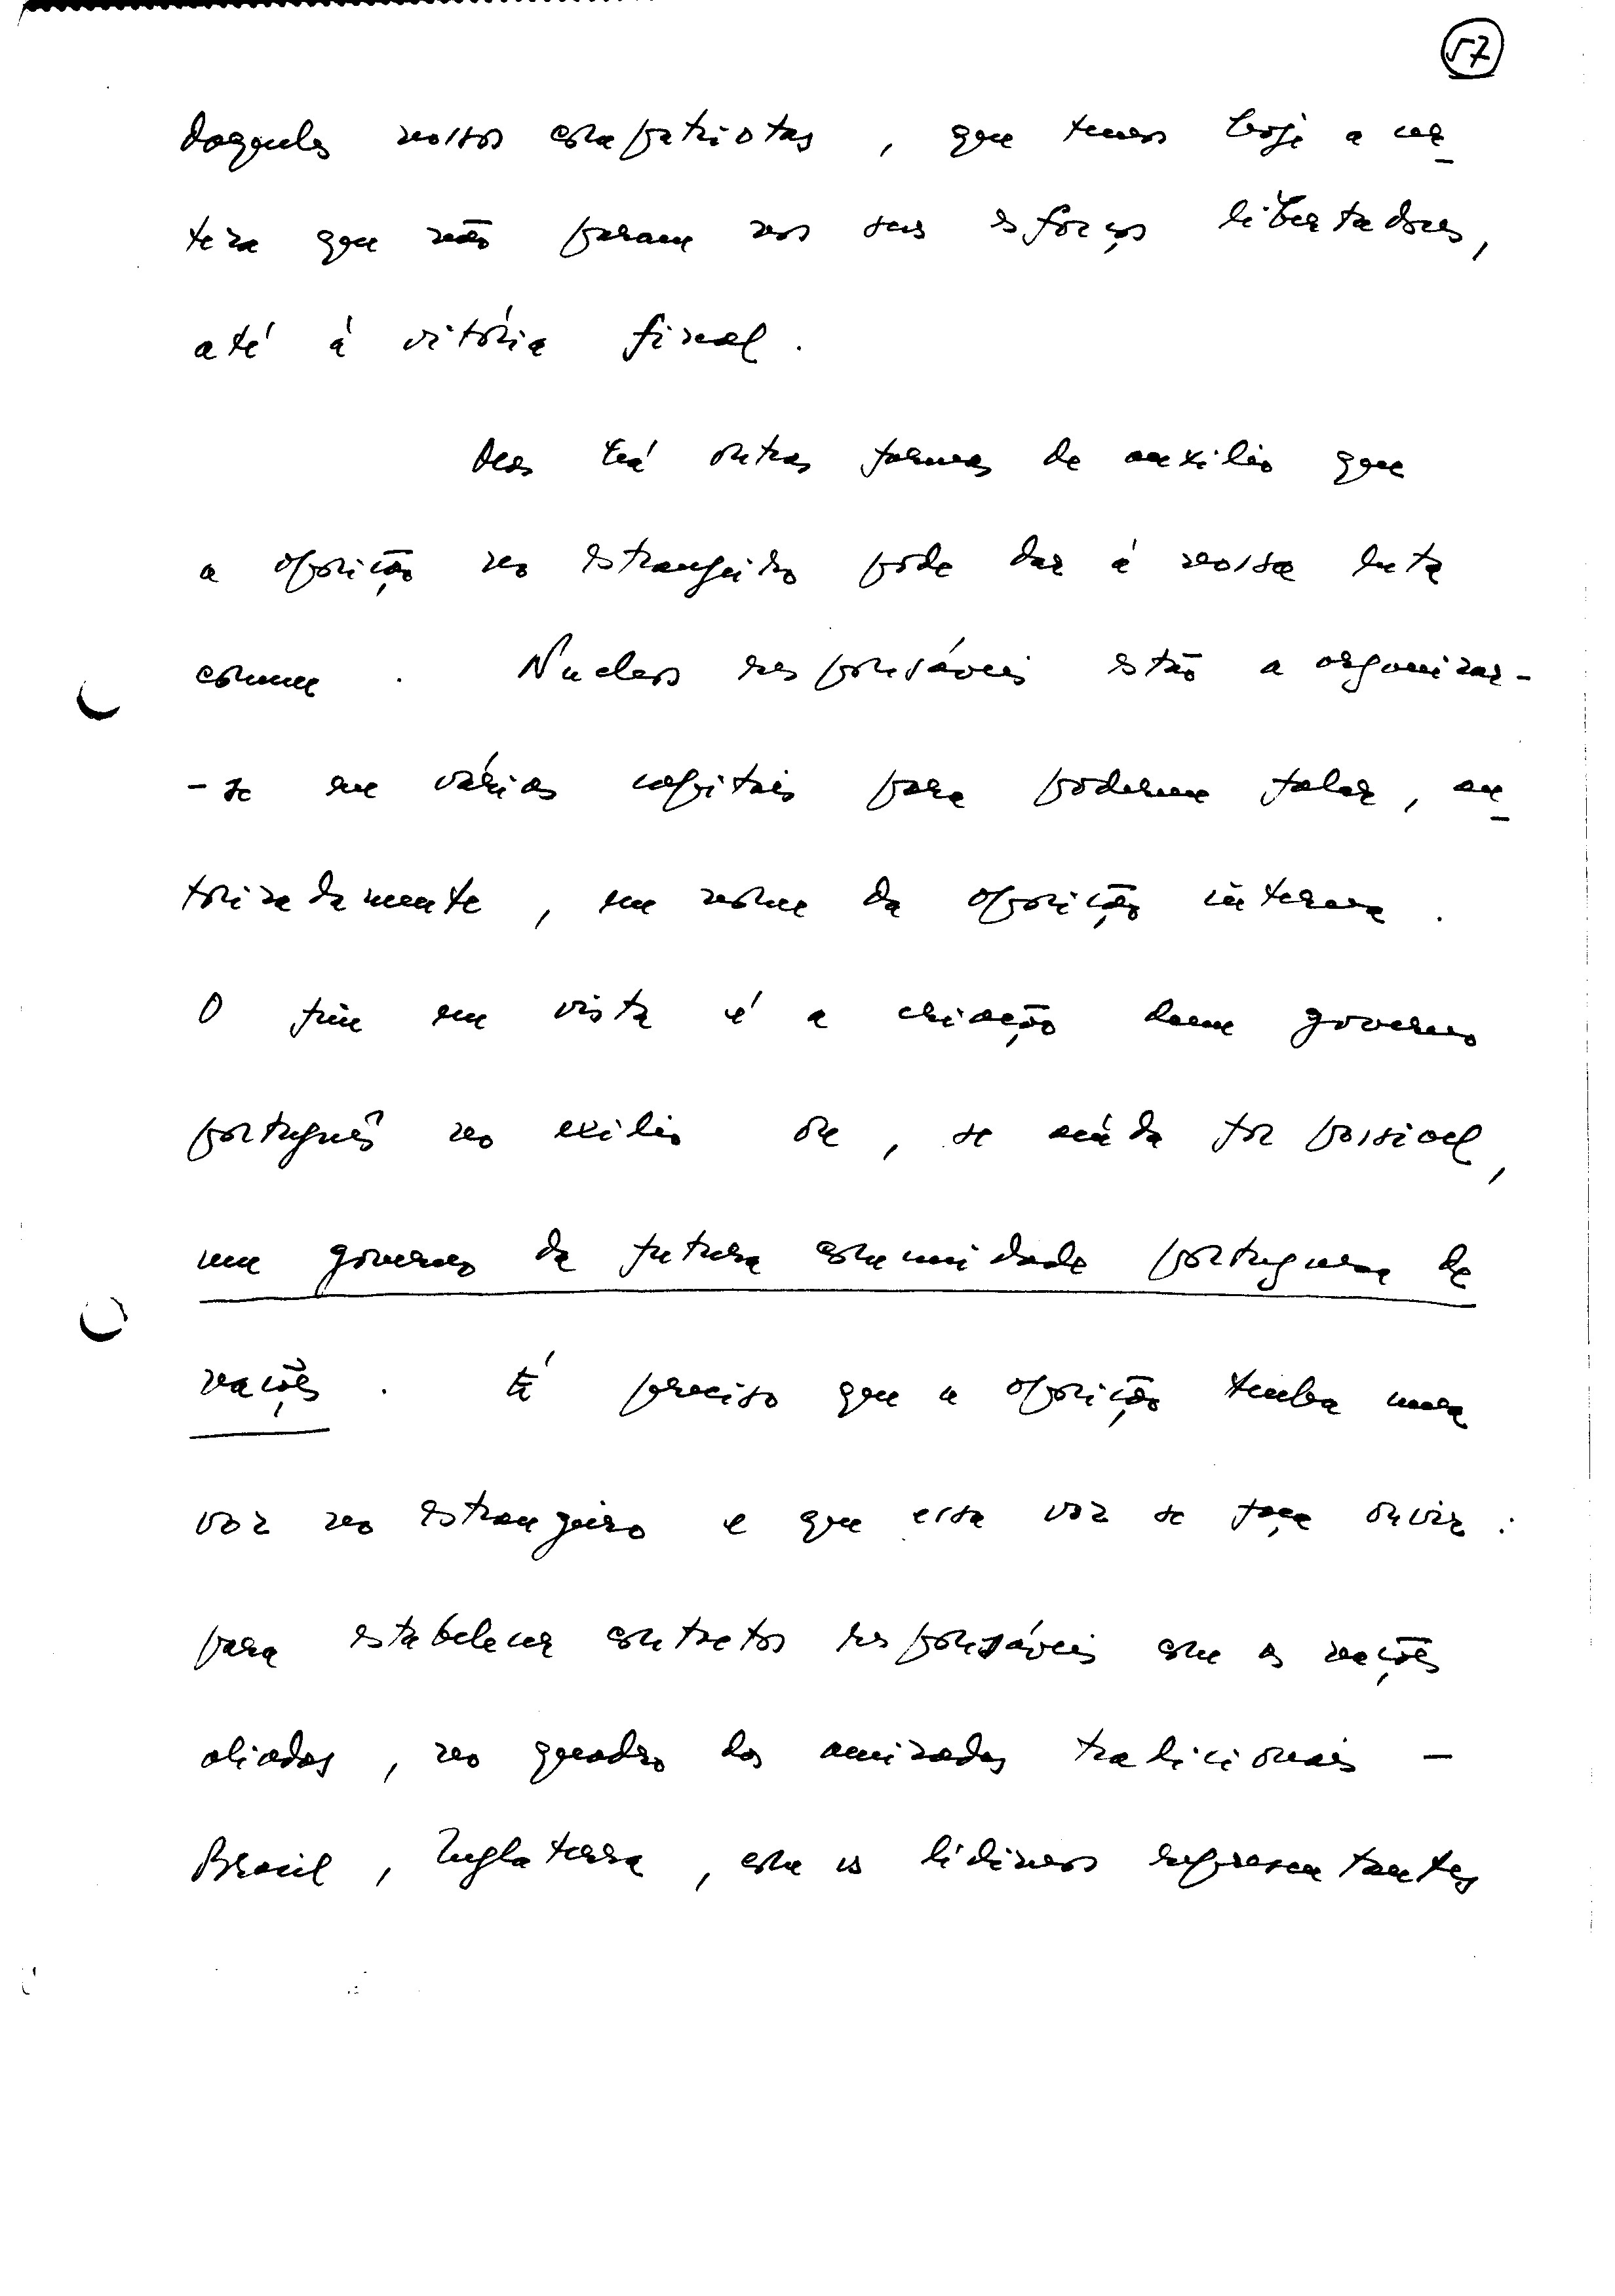 57
daqueles nossos compatriotas, que temos hoje a cer-
teza que não param nos seus esforços libertadores,
até á vitória final.
Mas há outras formas de auxilio que
a oposição no estrangeiro póde dar á nossa luta
comum. Nucleos responsáveis estão a organizar-
-se em várias capitais para poderem falar, au-
torizadamente, em nome da oposição interna.
O fim em vista é a criação dum governo
português no exilio ou, se ainda for possivel,
um governo da futura comunidade portuguesa de
nações. É preciso que a oposição tenha uma
voz no estrangeiro e que essa voz se faça ouvir:
para estabelecer contactos responsáveis com as nações
aliadas, no quadro das amizades tradicionais -
Brasil, Inglaterra, com os lidimos representantes